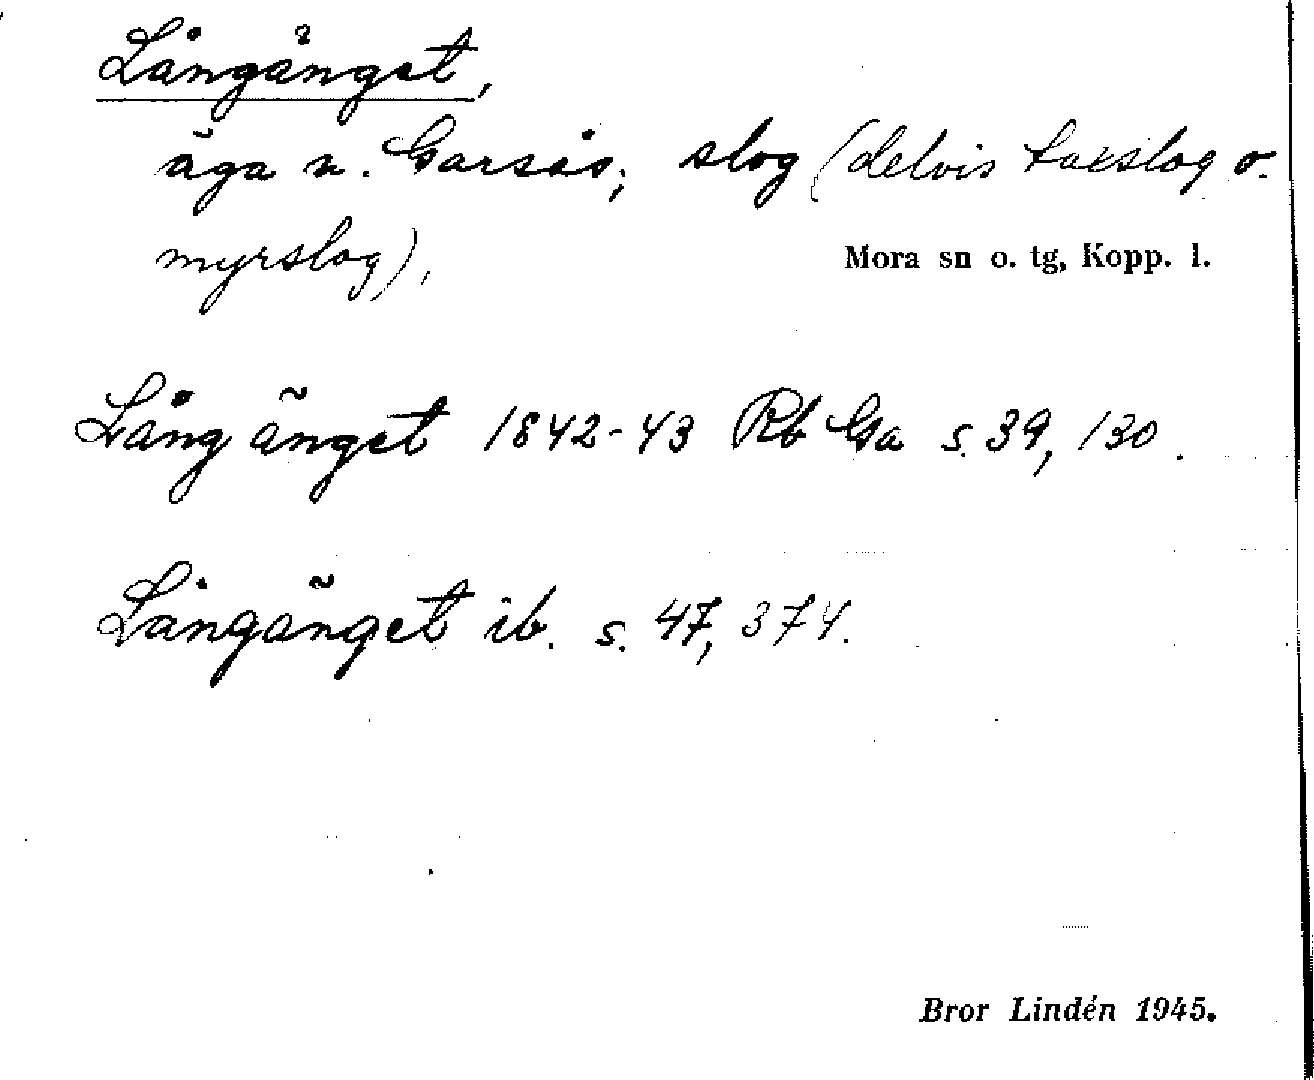 Långänget,
äga n. Garsås; slog (delvis takslog o.
myrslog),
Mora sn o. tg, Kopp. l.
Lång änget 1842-43 Rb Ga s. 39, 130.
Långänget ib. s. 47, 374.
Bror Lindén 1945.